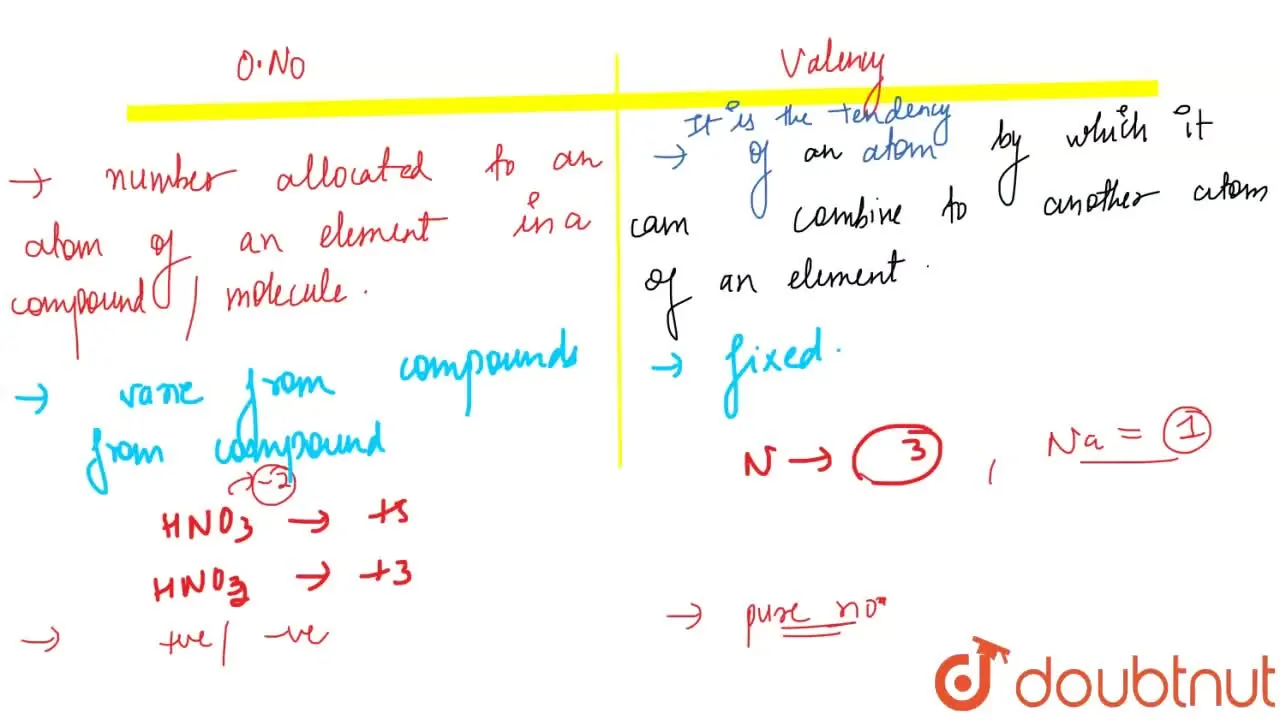 O.No
→ number allocated to an
atom of an element in a
compound / molecule.
→ varie from compounds
from compound
→ -2
HNO3 → +5
HNO2 → +3
→ +ve / -ve
Valency
It is the tendency
→ of an atom by which it
can combine to another atom
of an element.
→ fixed.
N → 3 , Na = 1
→ pure no
doubtnut